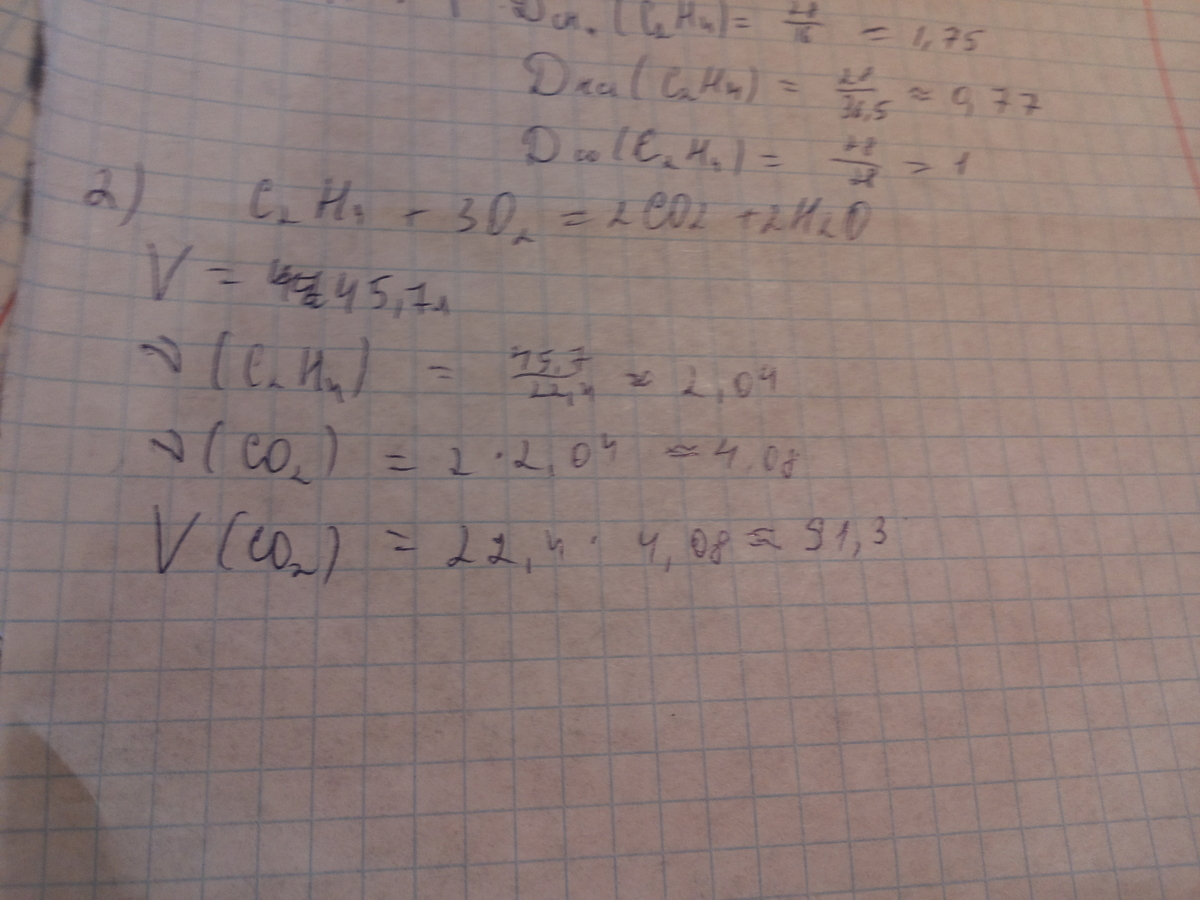 D CH₄ (C₂H₄) = 28/16 = 1,75
D HCl (C₂H₄) = 28/36,5 ≈ 0,77
D CO (C₂H₄) = 28/28 = 1
2) C₂H₄ + 3O₂ = 2CO₂ + 2H₂O
V = 45,7л
ν(C₂H₄) = 45,7/22,4 ≈ 2,04
ν(CO₂) = 2 · 2,04 ≈ 4,08
V(CO₂) = 22,4 · 4,08 ≈ 91,3